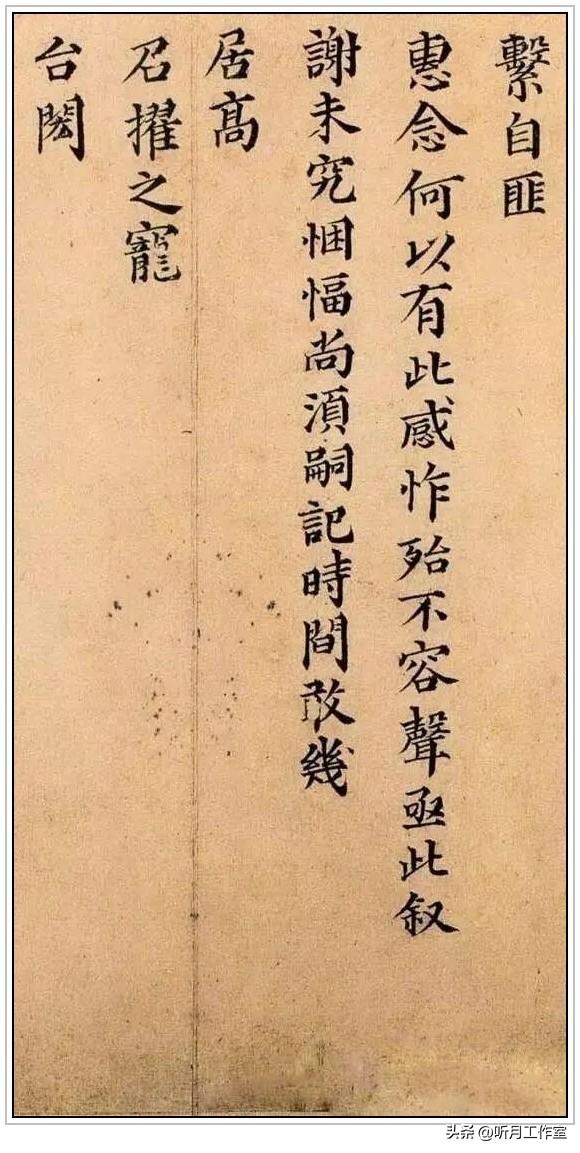 繫自匪
惠念何以有此感怍殆不容聲亟此叙
謝未究悃愊尚須嗣記時間敢幾
居高
召擢之寵
台閎
头条 @听月工作室